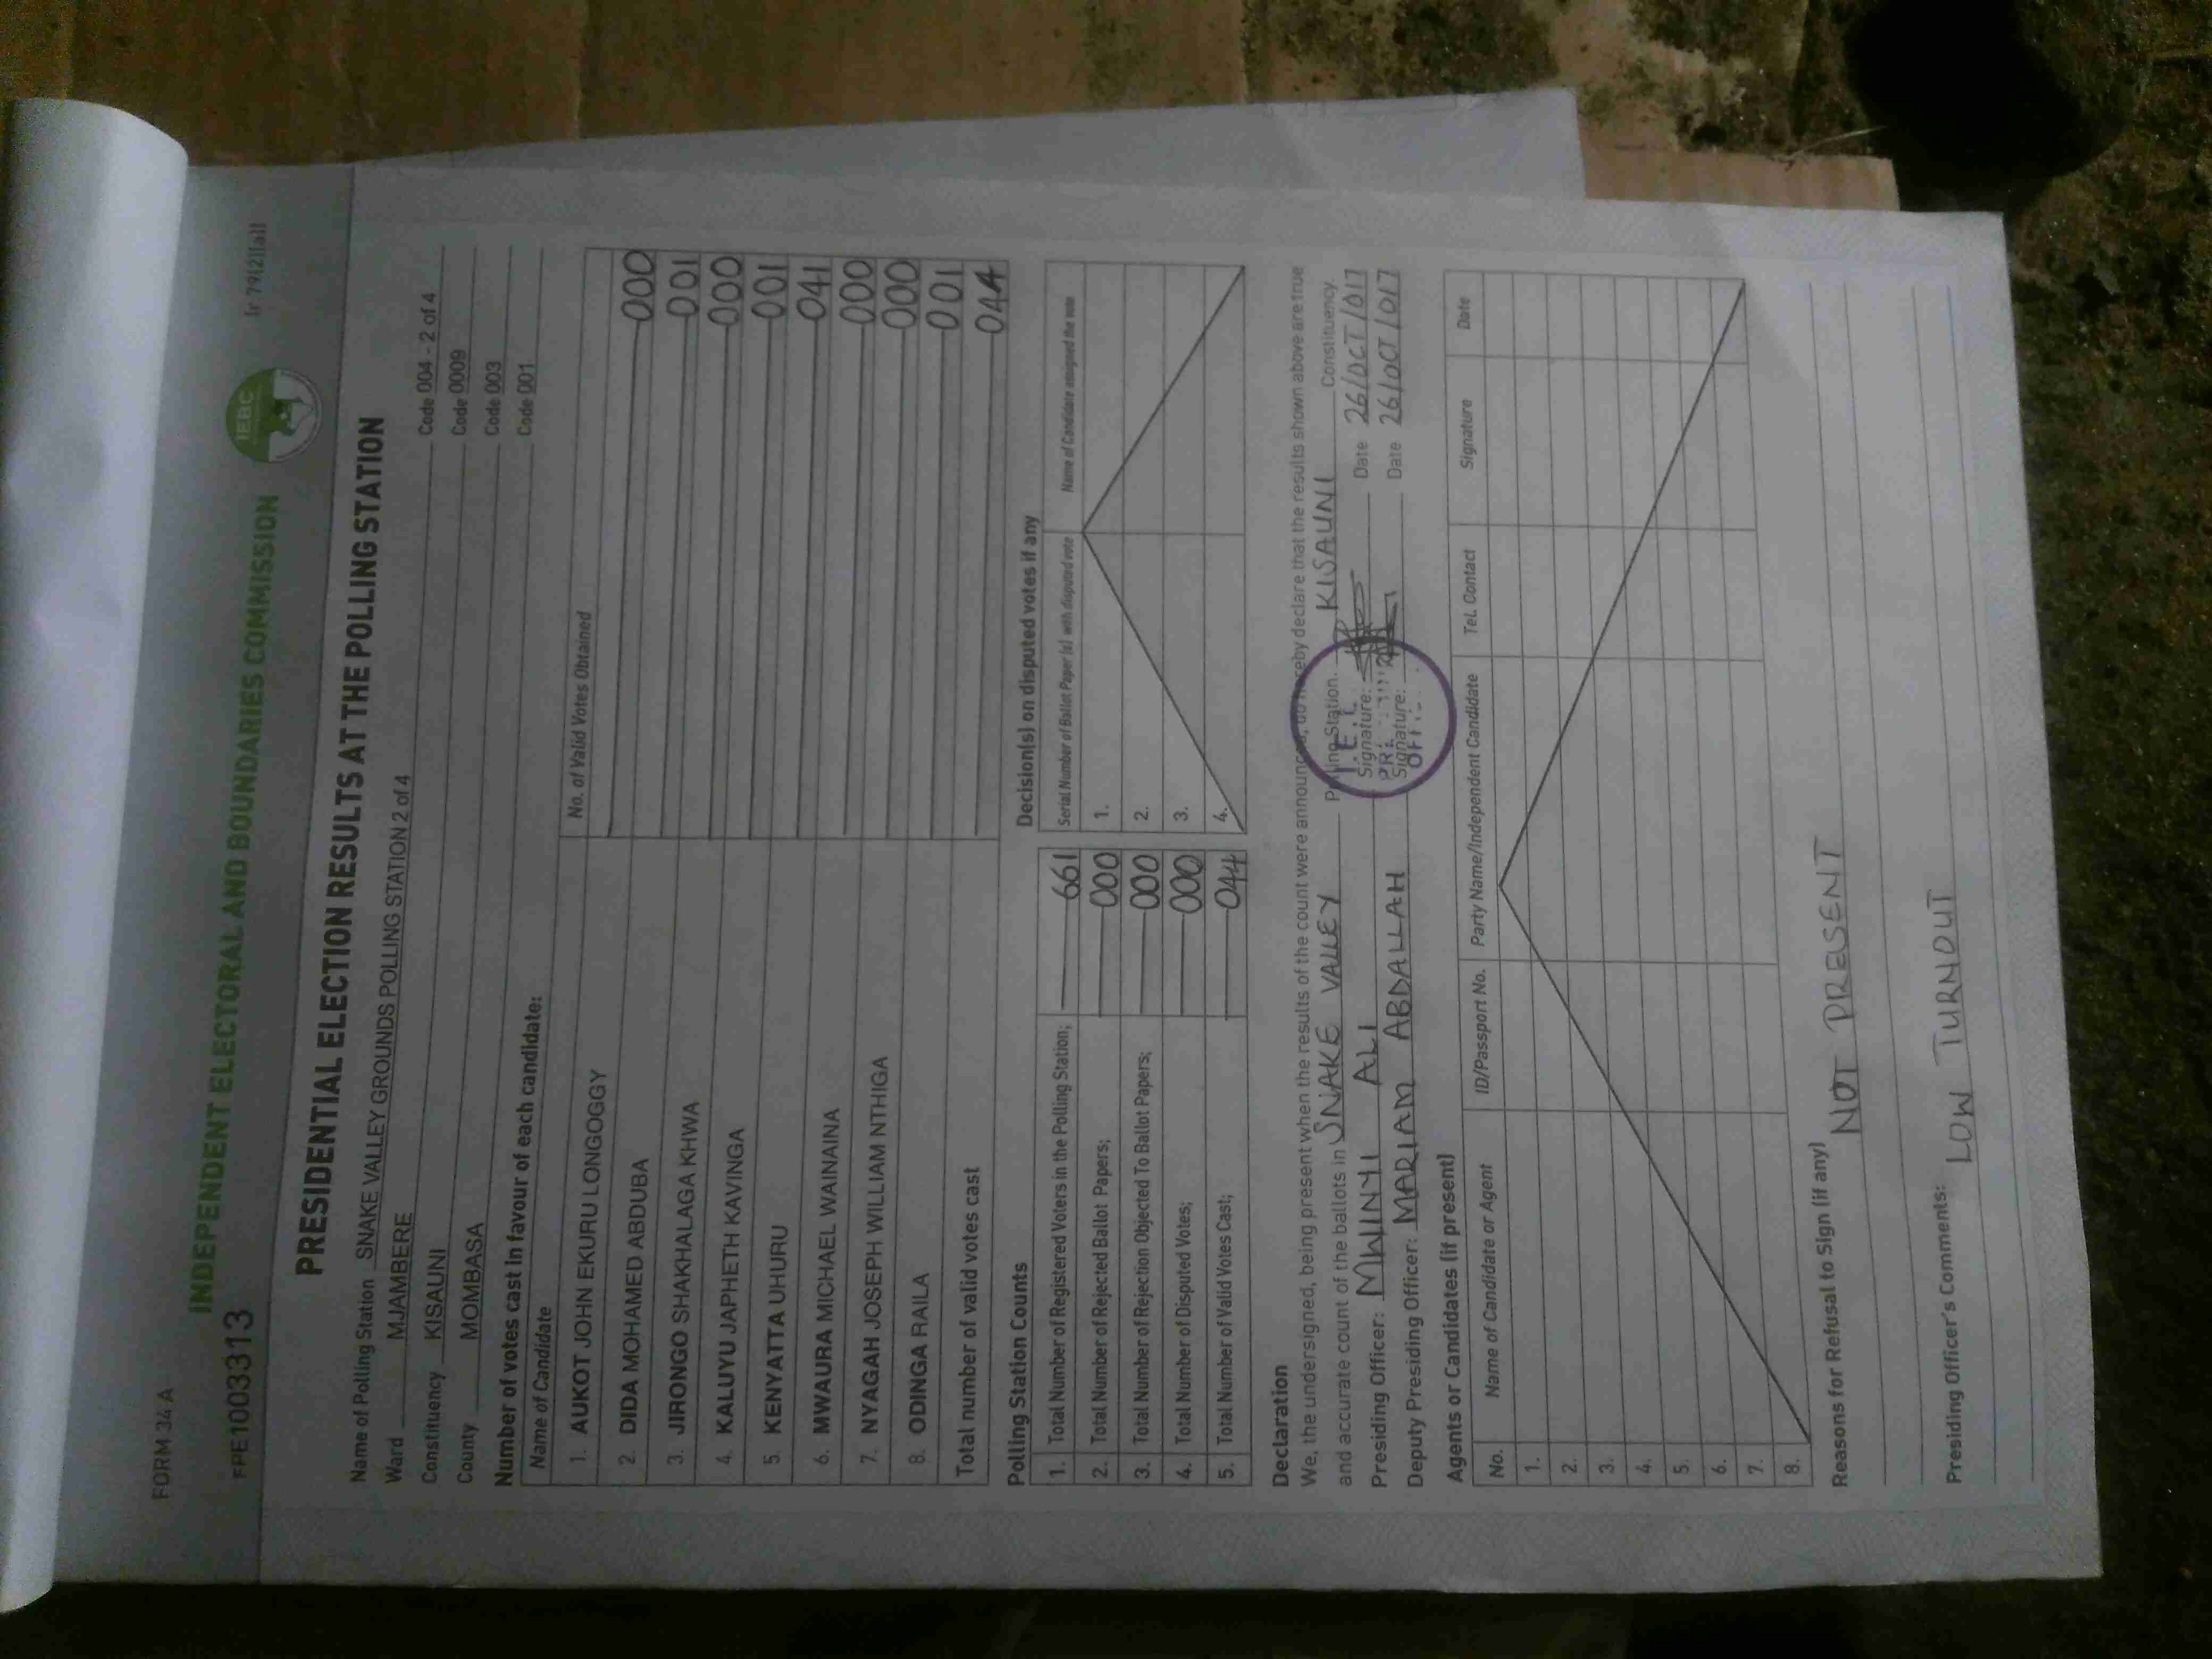 FORM 34 A
INDEPENDENT ELECTORAL AND BOUNDARIES COMMISSION
IEBC
(r 79(2)(a))
FPE1003313
PRESIDENTIAL ELECTION RESULTS AT THE POLLING STATION
Name of Polling Station SNAKE VALLEY GROUNDS POLLING STATION 2 of 4 Code 004 - 2 of 4
Ward MJAMBERE Code 0009
Constituency KISAUNI Code 003
County MOMBASA Code 001
Number of votes cast in favour of each candidate:
Name of Candidate No. of Valid Votes Obtained
1. AUKOT JOHN EKURU LONGOGGY 000
2. DIDA MOHAMED ABDUBA 001
3. JIRONGO SHAKHALAGA KHWA 000
4. KALUYU JAPHETH KAVINGA 001
5. KENYATTA UHURU 041
6. MWAURA MICHAEL WAINAINA 000
7. NYAGAH JOSEPH WILLIAM NTHIGA 000
8. ODINGA RAILA 001
Total number of valid votes cast 044
Polling Station Counts
1. Total Number of Registered Voters in the Polling Station; 661
2. Total Number of Rejected Ballot Papers; 000
3. Total Number of Rejection Objected To Ballot Papers; 000
4. Total Number of Disputed Votes; 000
5. Total Number of Valid Votes Cast; 044
Decision(s) on disputed votes if any
Serial Number of Ballot Paper (s) with disputed vote Name of Candidate assigned the vote
1.
2.
3.
4.
Declaration
We, the undersigned, being present when the results of the count were announced, do hereby declare that the results shown above are true
and accurate count of the ballots in SNAKE VALLEY Polling Station. KISAUNI Constituency.
Presiding Officer: MWINYI ALI Signature: Date 26/OCT/017
Deputy Presiding Officer: MARIAM ABDALLAH Signature: Date 26/OCT/017
Agents or Candidates (if present)
No. Name of Candidate or Agent ID/Passport No. Party Name/Independent Candidate Tel. Contact Signature Date
1.
2.
3.
4.
5.
6.
7.
8.
Reasons for Refusal to Sign (if any)
NOT PRESENT
Presiding Officer's Comments:
LOW TURNOUT